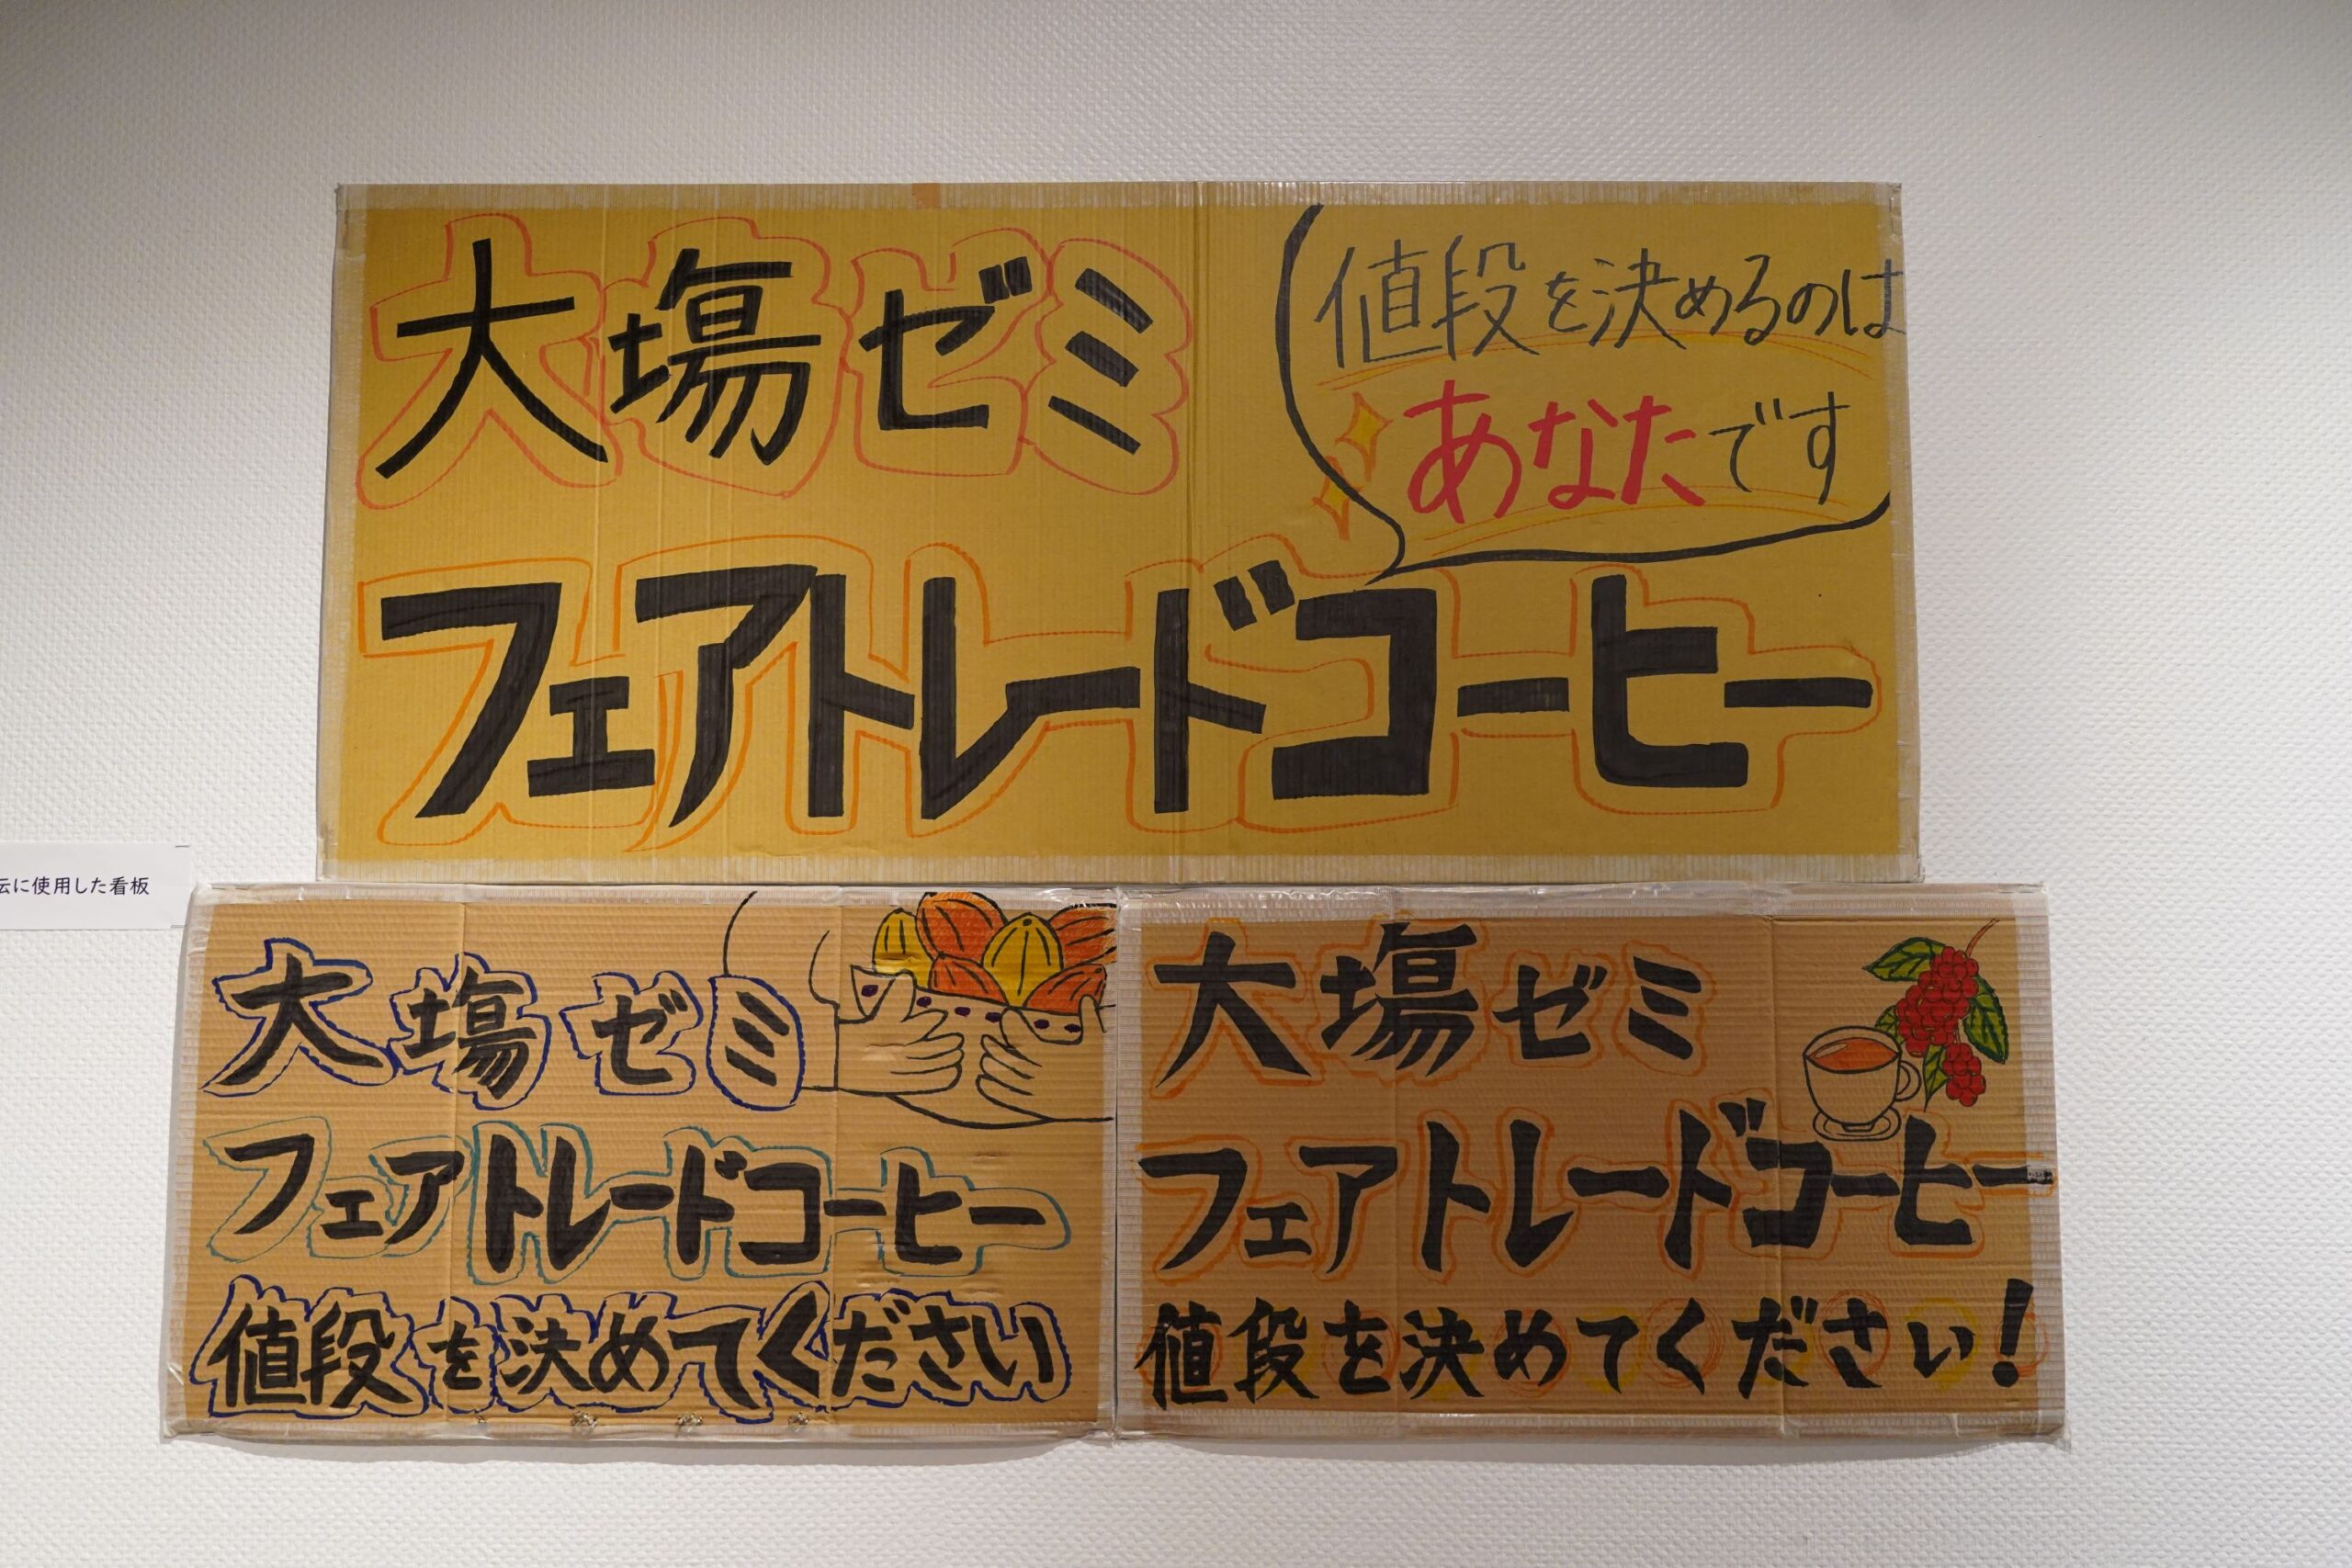 大塲ゼミ
値段を決めるのは
あなたです
フェアトレードコーヒー
に使用した看板
大塲ゼミ
フェアトレードコーヒー
値段を決めてください
大塲ゼミ
フェアトレードコーヒー
値段を決めてください!